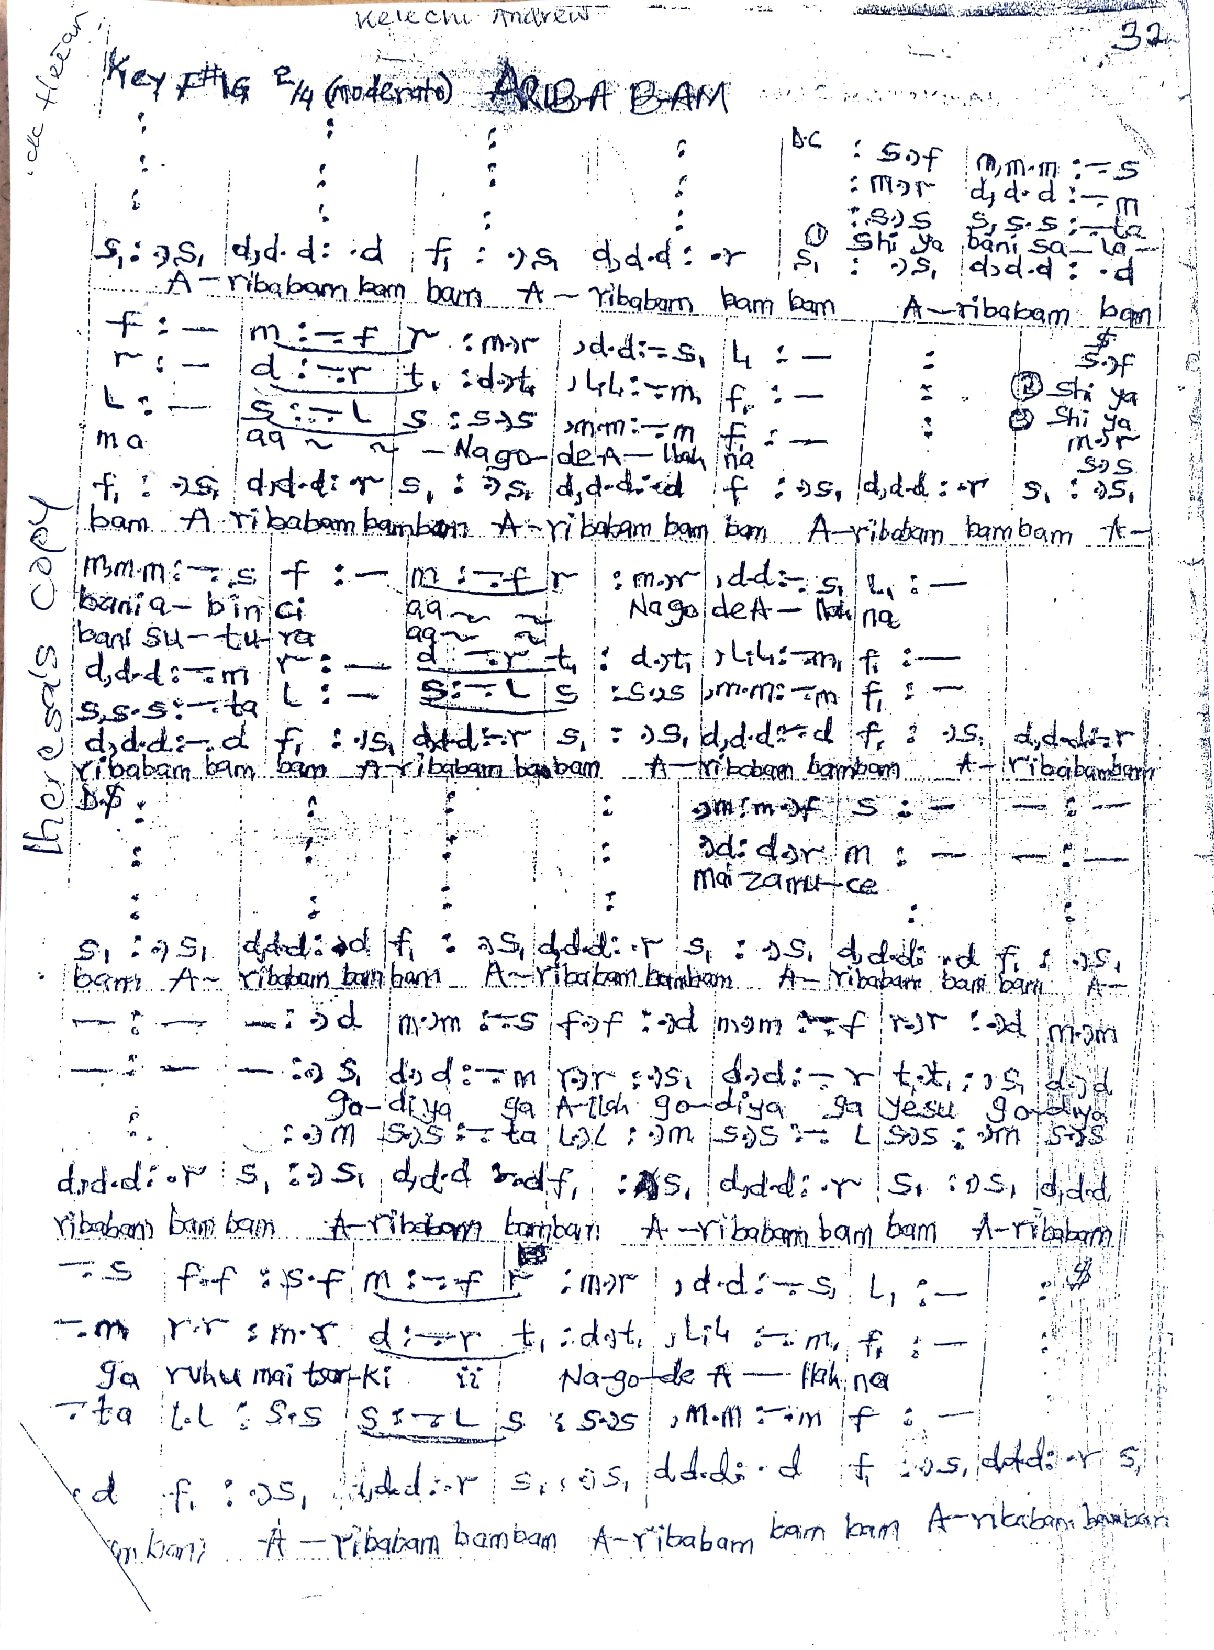 Kelechi Andrew
32
Key F#|G 2/4 (moderato) ARIBA BAM
D.C : s.,f | m,m.m :-.s
: m.,r d,d.d :-.m
: s.,s s,s.s :-.ta
① Shi ya bani sa-la-
s₁ : .,s₁ | d,d.d : .d | f₁ : .,s₁ | d,d.d : .r | s₁ : .,s₁ | d,d.d : .d
A-ribabam bam bam A-ribabam bam bam A-ribabam bam
f :- | m :-.f | r : m.,r | ,d.d :-.s₁ | L₁ :- | : | $ s.,f
r :- | d :-.r | t₁ : d.,t₁ | ,L₁.L₁ :-.m₁ | f₁ :- | : | ② Shi ya
L :- | s :-.L | s : s.,s | ,m.m :-.m | f₁ :- | : | ③ Shi ya
ma aa ~ ~ - Nago-de A-llah na m.,r
s.,s
f₁ : .,s₁ | d,d.d : .r | s₁ : .,s₁ | d,d.d : .d | f₁ : .,s₁ | d,d.d : .r | s₁ : .,s₁
bam A ribabam bambam A-ribabam bam bam A-ribabam bambam A-
m,m.m :-.s | f :- | m :-.f | r : m.,r | ,d.d :-.s₁ | L₁ :-
bani a-bin ci aa ~ ~ Nago de A-llah na
bani su-tu-ra aa ~ ~
d,d.d :-.m | r :- | d :-.r | t₁ : d.,t₁ | ,L₁.L₁ :-.m₁ | f₁ :-
s,s.s :-.ta | L :- | s :-.L | s : s.,s | ,m.m :-.m | f₁ :-
d,d.d :-.d | f₁ : .,s₁ | d,d.d :-.r | s₁ : .,s₁ | d,d.d :-.d | f₁ : .,s₁ | d,d.d :-.r
ribabam bam bam A-ribabam bambam A-ribabam bambam A-ribabambam
D.$ : | : | : | : | .,m : m.,f | s :- | - :-
: | : | : | : | .,d : d.,r | m :- | - :-
mai zamu-ce
s₁ : .,s₁ | d,d.d : .d | f₁ : .,s₁ | d,d.d : .r | s₁ : .,s₁ | d,d.d : .d | f₁ : .,s₁
bam A-ribabam bam bam A-ribabam bambam A-ribabam bam bam A-
- :- | - : .,d | m.,m :-.s | f.,f : .,d | m.,m :-.f | r.,r : .,d | m.,m
- :- | - : .,s₁ | d.,d :-.m | r.,r : .,s₁ | d.,d :-.r | t₁.,t₁ : .,s₁ | d.,d
go-diya ga A-llah go-diya ga yesu go-diya
: .,m | s.,s :-.ta | L.,L : .,m | s.,s :-.L | s.,s : .,m | s.,s
d,d.d : .r | s₁ : .,s₁ | d,d.d : .d | f₁ : .,s₁ | d,d.d : .r | s₁ : .,s₁ | d,d.d
ribabam bam bam A-ribabam bambam A-ribabam bam bam A-ribabam
-.s | f.f : s.f | m :-.f | r : m.,r | ,d.d :-.s₁ | L₁ :- | : $
-.m | r.r : m.r | d :-.r | t₁ : d.,t₁ | ,L₁.L₁ :-.m₁ | f₁ :- | :
ga ruhu mai tsar-ki ii Na-go-de A-llah na
-.ta | L.L : s.s | s :-.L | s : s.,s | ,m.m :-.m | f :-
.d | f₁ : .,s₁ | d,d.d : .r | s₁ : .,s₁ | d,d.d : .d | f₁ : .,s₁ | d,d.d : .r | s₁
bam A-ribabam bambam A-ribabam bam bam A-ribabam bambam
Theresa's copy